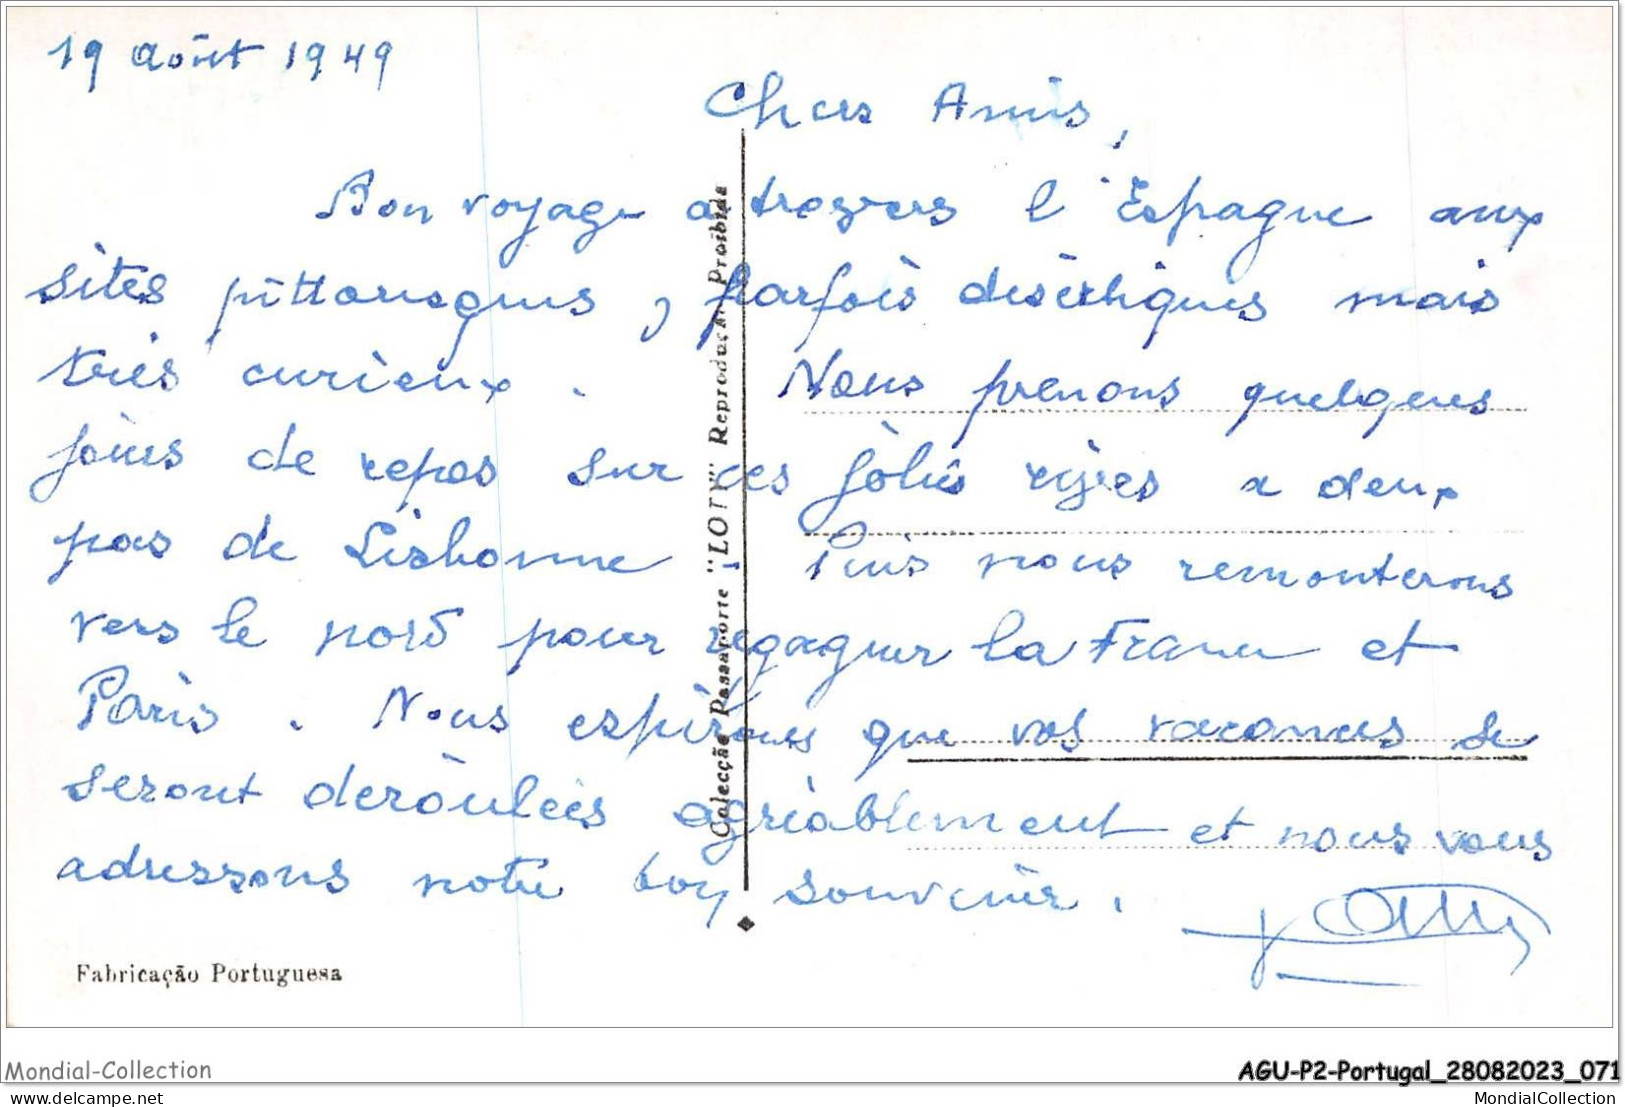 19 Août 1949
Chers Amis,
Bon voyage a travers l'Espagne aux
sites pittoresques, parfois désertiques mais
très curieux. Nous prenons quelques
jours de repos sur ces jolies rives a deux
pas de Lisbonne. Puis nous remonterons
vers le nord pour regagner la France et
Paris. Nous espérons que vos vacances se
seront déroulées agréablement et nous vous
adressons notre bon souvenir.
Colecção Passaporte "LOTY" Reprodução Proibida
Fabricação Portuguesa
Mondial-Collection
AGU-P2-Portugal_28082023_071
mondial-collection.com
MondialCollection